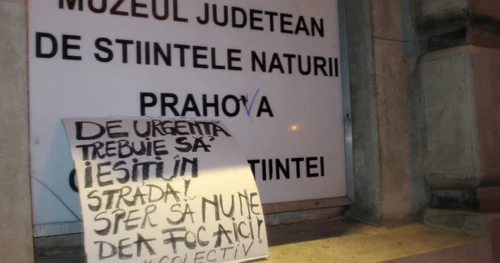 MUZEUL JUDETEAN
DE STIINTELE NATURII
PRAHOVA
STIINTEI
DE URGENȚĂ
TREBUIE SĂ
IEȘIȚI ÎN
STRADĂ!
SPER SĂ NU NE
DEA FOC AICI!
#COLECTIV